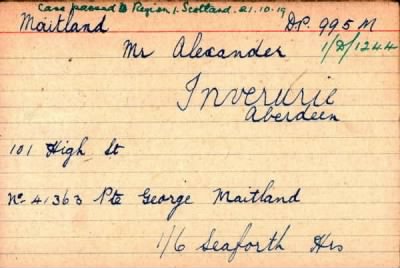 Case passed to Region 1. Scotland. 21.10.19
Maitland D.P. 995 M
Mr Alexander 1/D/1244
Inverurie
Aberdeen
101 High St
No. 41363 Pte George Maitland
1/6 Seaforth Hrs